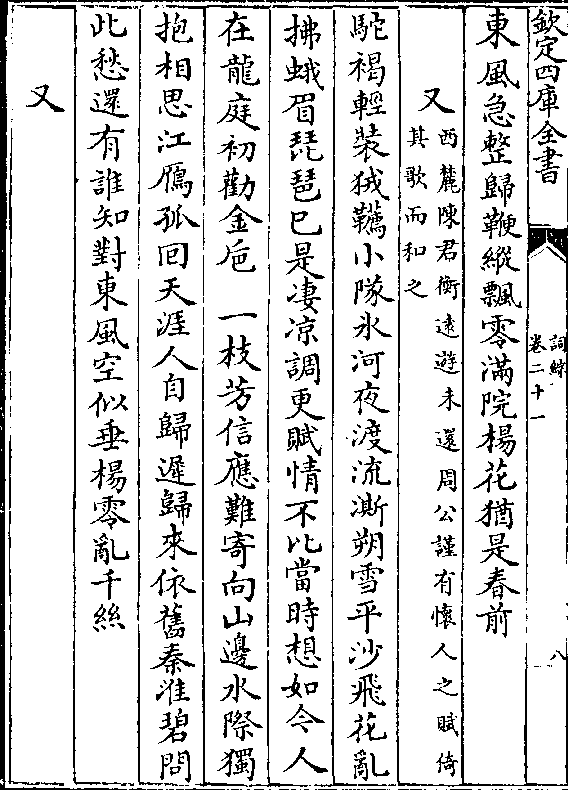 欽定四庫全書
詞綜
卷二十一
八
東風急整歸鞭縱飄零滿院楊花猶是春前
又
西麓陳君衡逺遊未還周公謹有懷人之賦倚
其歌而和之
駝褐輕裝狨韉小隊氷河夜渡流澌朔雪平沙飛花亂
拂蛾眉琵琶已是凄凉調更賦情不比當時想如今人
在龍庭初勸金巵　一枝芳信應難寄向山邊水際獨
抱相思江鴈孤囘天涯人自歸遲歸來依舊秦淮碧問
此愁還有誰知對東風空似垂楊零亂千絲
又